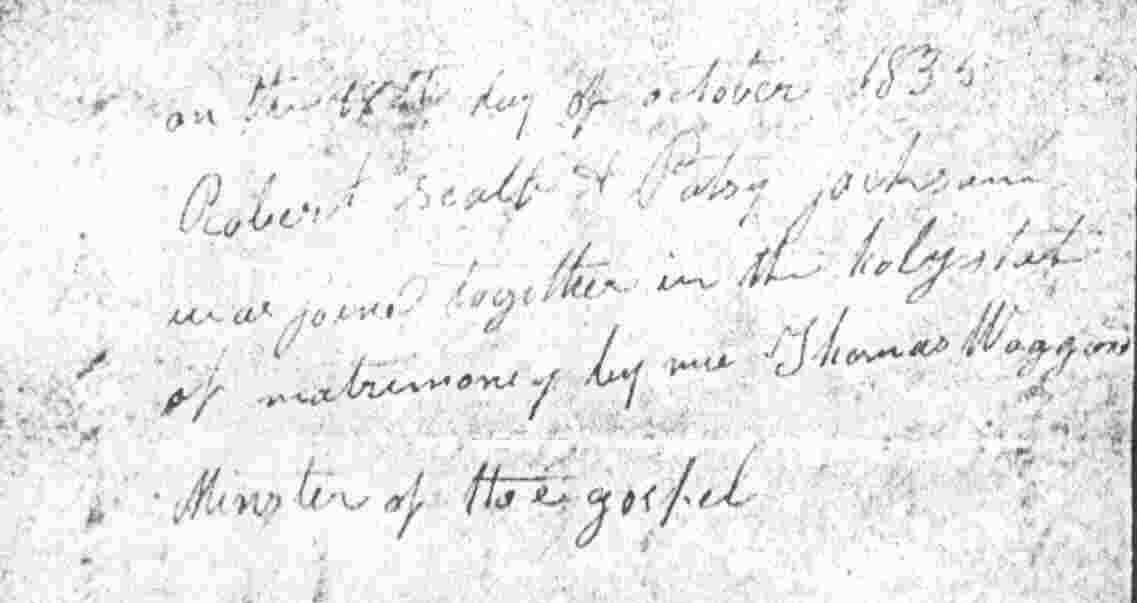 on the 18th day of october 1835
Robert Scalf & Patsy jackson
war joind together in the holy stat
of matrimoney by me Thomas Waggoner
Minster of the gospel